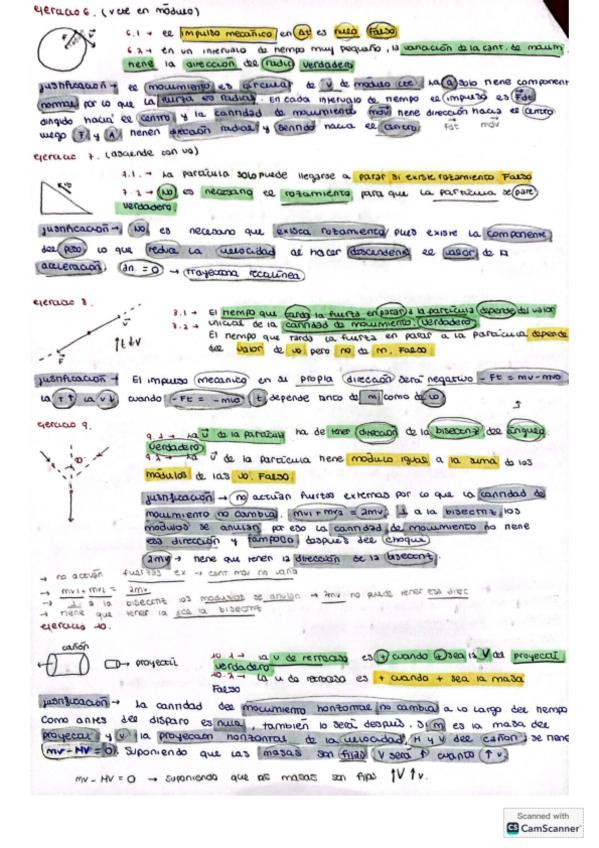 ejercicio 6. (v cte en módulo)
6.1 → el impulso mecánico en Δt es nulo Falso
6.2 → en un intervalo de tiempo muy pequeño, la variación de la cant. de movim.
tiene la dirección del radio verdadero
justificación → el movimiento es circular de v de módulo cte. La a solo tiene component
normal por lo que la fuerza es radial. En cada intervalo de tiempo el impulso es F·dt
dirigido hacia el centro y la cantidad de movimiento mdv tiene dirección hacia el centro
luego F y A tienen dirección radial y sentido hacia el centro. F·dt mdv
ejercicio 7. (asciende con vo)
vo
7.1. → La partícula solo puede llegarse a parar si existe rozamiento. Falso
7.2 → No es necesario el rozamiento para que la partícula se pare
verdadero.
justificación → No es necesario que exista rozamiento pues existe la componente
del peso lo que reduce la velocidad al hacer descendente el valor de la
aceleración. (an = 0) → trayectoria rectilínea
ejercicio 8.
v
F
↑t↓v
8.1 → El tiempo que tarda la fuerza en parar a la partícula depende del valor
8.2 → inicial de la cantidad de movimiento. Verdadero
El tiempo que tarda la fuerza en parar a la partícula depende
del valor de vo pero no de m. Falso
justificación → El impulso mecánico en su propia dirección será negativo - Ft = mv-mvo
la t↑ la v↓ cuando - Ft = - mvo t depende tanto de m como de vo
ejercicio 9.
9.1 → La v de la partícula ha de tener dirección de la bisectriz del ángulo
Verdadero
9.2 → La v de la partícula tiene módulo igual a la suma de los
módulos de las vo. Falso
justificación → no actúan fuerzas externas por lo que la cantidad de
movimiento no cambia. mv1 + mv2 = 2mv. ⊥ a la bisectriz, los
módulos se anulan por eso la cantidad de movimiento no tiene
esa dirección y tampoco después del choque.
2mv → tiene que tener la dirección de la bisectriz.
→ no actúan fuerzas ex → cant mov no varía
→ mv1 + mv2 = 2mv
→ ⊥ a la bisectriz los módulos se anulan → 2mv no puede tener esa direc
→ tiene que tener la de la bisectriz
ejercicio 10.
cañón
→ proyectil
10.1 → La v de retroceso es + cuando + sea la V del proyectil
verdadero
10.2 → La v de retroceso es + cuando + sea la masa
Falso
justificación → La cantidad del movimiento horizontal no cambia a lo largo del tiempo
Como antes del disparo es nula, también lo será después. Si m es la masa del
proyectil y v la proyección horizontal de la velocidad, M y V del cañón, se tiene
mv - MV = 0. Suponiendo que las masas son fijas V será ↑ cuanto ↑ v.
mv - MV = 0 → suponiendo que las masas son fijas ↑V ↑v.
Scanned with
CS CamScanner